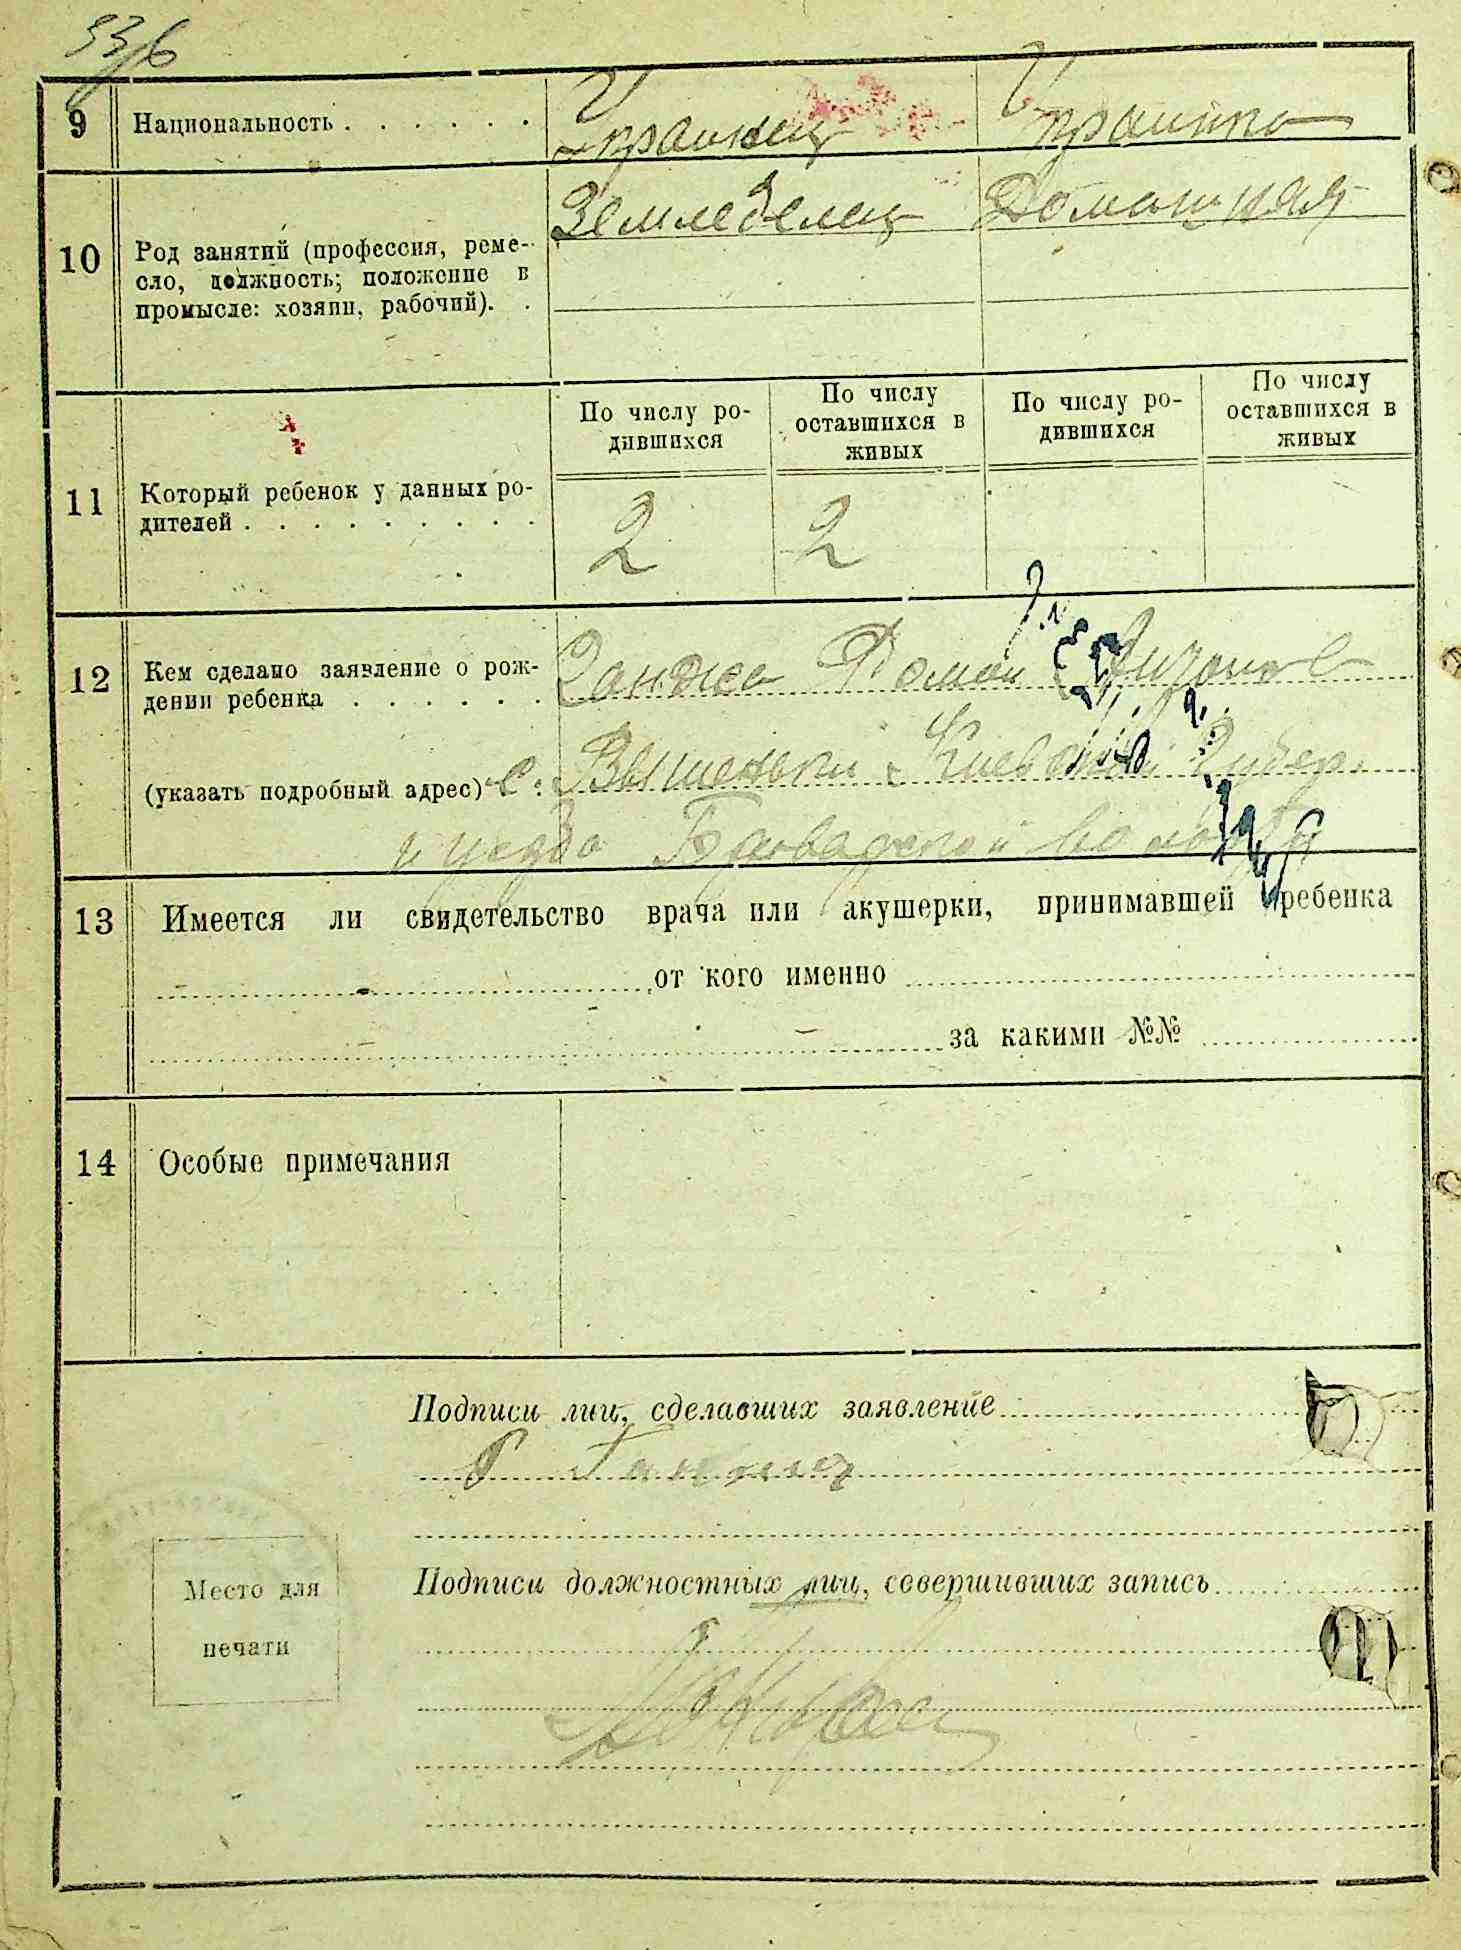 9 Национальность . . . . . . Украинец Украинка
10 Род занятий (профессия, реме-
сло, должность; положение в
промысле: хозяин, рабочий). .
Земледелец Домашняя
По числу ро-
дившихся
По числу
оставшихся в
живых
По числу ро-
дившихся
По числу
оставшихся в
живых
11 Который ребенок у данных ро-
дителей . . . . . . . . .
2 2
12 Кем сделано заявление о рож-
дении ребенка . . . . . .
Роман
(указать подробный адрес) с. Вышеньки Киевской Губер.
и уезда Броварской волости
13 Имеется ли свидетельство врача или акушерки, принимавшей ребенка
от кого именно
за какими №№
14 Особые примечания
Подписи лиц, сделавших заявление
Р
Место для
печати
Подписи должностных лиц, совершивших запись